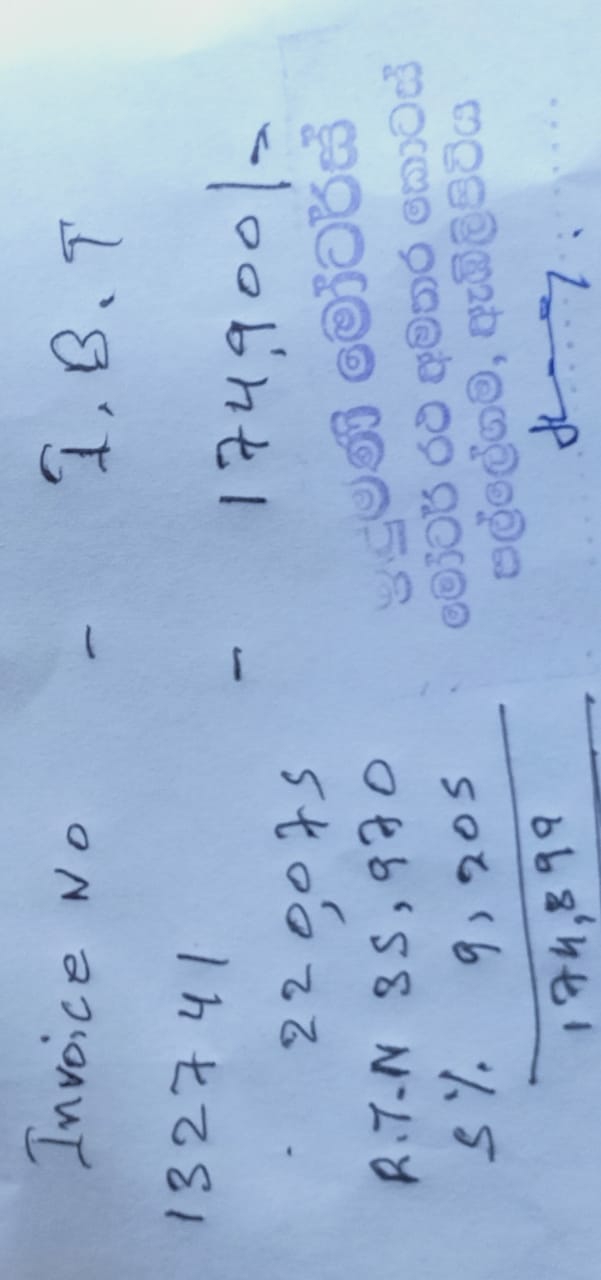 Invoice No - I.B.T
132741 - 174,900/-
220,075
R.T.N 35,970
5% 9,205
174,899
මෝටර්ස්
මෝටර් රථ අමතර කොටස්